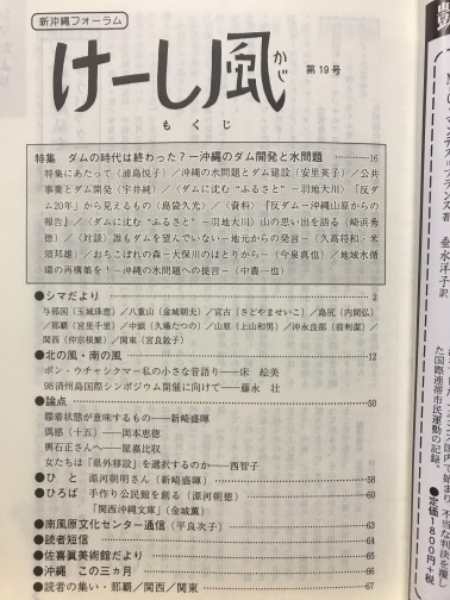 新沖縄フォーラム
けーし風
かじ
第19号
もくじ
特集 ダムの時代は終わった?ー沖縄のダム開発と水問題 …………16
特集にあたって(浦島悦子)/沖縄の水問題とダム建設(安里英子)/公共
事業とダム開発(宇井純)/〈ダムに沈む“ふるさと”ー羽地大川〉「反ダ
ム20年」から見えるもの(島袋久光)/〈資料〉「反ダムー沖縄山原からの
報告」/〈ダムに沈む“ふるさと”ー羽地大川〉山の思い出を語る(崎浜秀
徳)/〈対談〉誰もダムを望んでいないー地元からの発言ー(久高将和・米
須邦雄)/おちこぼれの森ー大保川のほとりからー(今泉真也)/地域水循
環の再構築を!ー沖縄の水問題への提言ー(中農一也)
●シマだより ……………………2
与那国(玉城珠恵)/八重山(金城朝夫)/宮古(さどやませいこ)/島尻(内間弘)
/那覇(宮里千里)/中頭(久場たつの)/山原(上山和男)/沖永良部(前利潔)/
関西(仲宗根繁)/関東(宮良敦子)
●北の風・南の風 ……………………12
ボン・ウチャンシクマー私の小さな昔語りー床 絵美
98済州島国際シンポジウム開催に向けてー藤永 壮
●論点 ……………………50
膠着状態が意味するものー新崎盛暉
偶感(十五)ー岡本恵徳
輿石正さんへー屋嘉比収
女たちは「県外移設」を選択するのかー西智子
●ひと 源河朝明さん(新崎盛暉) ……………………58
●ひろば 手作り公民館を創る(源河朝徳) ……………………60
「関西沖縄文庫」(金城薫)
●南風原文化センター通信(平良次子) ……………………63
●読者短信 ……………………64
●佐喜眞美術館だより ……………………65
●沖縄 この三ヵ月 ……………………66
●読者の集い・那覇/関西/関東 ……………………67
垂水洋子訳
た国際連帯市民運動の記録。
●定価1800円+税